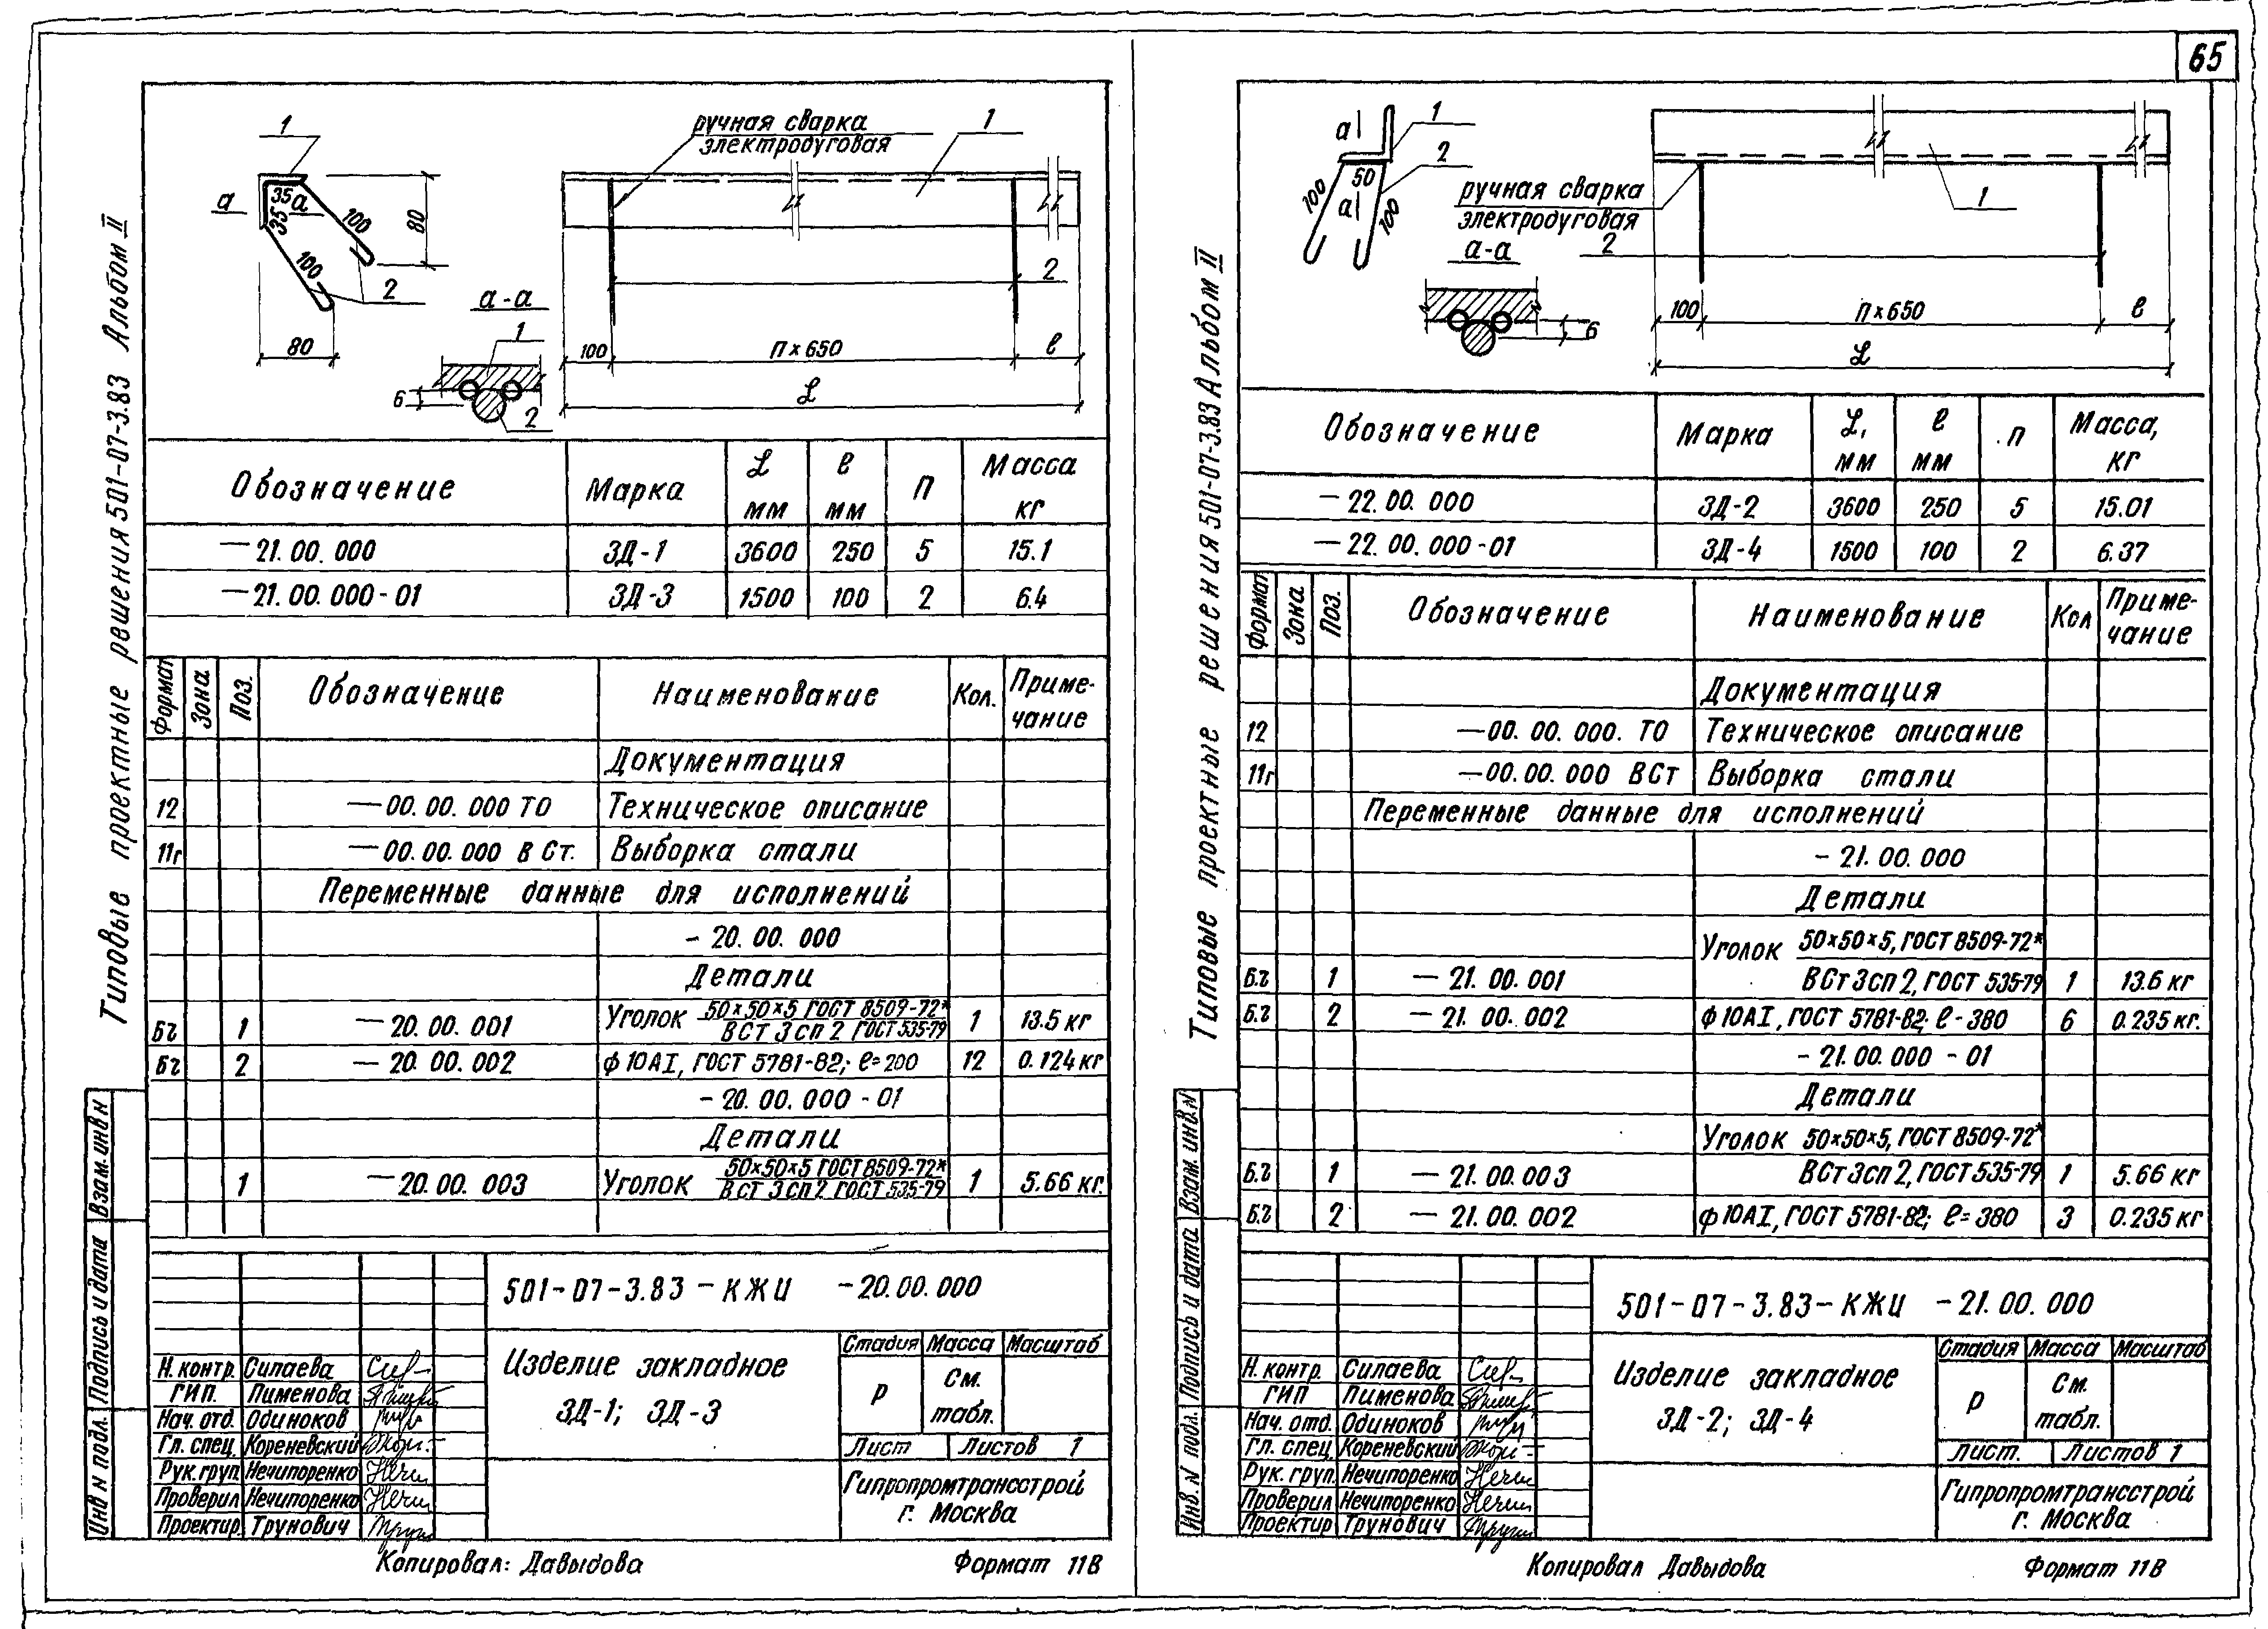 65
Типовые проектные решения 501-07-3.83 Альбом II
1
а
35 а
35
100
100
80
80
2
ручная сварка
электродуговая
1
2
а-а
1
6
2
100
п×650
ℓ
L
Обозначение Марка L мм ℓ мм п Масса кг
—21.00.000 ЗД-1 3600 250 5 15.1
—21.00.000-01 ЗД-3 1500 100 2 6.4
Формат Зона Поз. Обозначение Наименование Кол. Приме-
чание
Документация
12 —00.00.000 ТО Техническое описание
11г —00.00.000 В Ст. Выборка стали
Переменные данные для исполнений
- 20.00.000
Детали
Уголок 50×50×5 ГОСТ 8509-72*
Бг 1 — 20.00.001 ВСт 3 сп 2 ГОСТ 535-79 1 13.5 кг
Бг 2 — 20.00.002 ф10АI, ГОСТ 5781-82; ℓ=200 12 0.124 кг
- 20.00.000 -01
Детали
Уголок 50×50×5 ГОСТ 8509-72*
1 — 20.00.003 ВСт 3 сп 2 ГОСТ 535-79 1 5.66 кг.
Инв N подл. Подпись и дата Взам. инв N
501-07-3.83-КЖИ -20.00.000
Изделие закладное
ЗД-1; ЗД-3
Стадия Масса Масштаб
Р См.
табл.
Лист Листов 1
Гипропромтрансстрой
г. Москва
Н. контр. Силаева
ГИП. Пименова
Нач. отд. Одиноков
Гл. спец. Кореневский
Рук. груп. Нечипоренко
Проверил Нечипоренко
Проектир. Трунович
Копировал: Давыдова Формат 11В
Типовые проектные решения 501-07-3.83 Альбом II
а
1
2
50
а
100
100
ручная сварка
электродуговая
2
1
а-а
6
100
п×650
ℓ
L
Обозначение Марка L, мм ℓ мм п Масса, кг
—22.00.000 ЗД-2 3600 250 5 15.01
—22.00.000-01 ЗД-4 1500 100 2 6.37
Формат Зона Поз. Обозначение Наименование Кол Приме-
чание
Документация
12 —00.00.000. ТО Техническое описание
11г —00.00.000 ВСт Выборка стали
Переменные данные для исполнений
- 21.00.000
Детали
Уголок 50×50×5, ГОСТ 8509-72*
Б.г 1 — 21.00.001 ВСт 3сп 2, ГОСТ 535-79 1 13.6 кг
Б.г 2 — 21.00.002 ф10АI, ГОСТ 5781-82; ℓ-380 6 0.235 кг.
- 21.00.000 -01
Детали
Уголок 50×50×5, ГОСТ 8509-72*
Б.г 1 — 21.00.003 ВСт 3сп 2, ГОСТ 535-79 1 5.66 кг
Б.г 2 — 21.00.002 ф10АI, ГОСТ 5781-82; ℓ=380 3 0.235 кг
Инв. N подл. Подпись и дата Взам. инв. N
501-07-3.83-КЖИ -21.00.000
Изделие закладное
ЗД-2; ЗД-4
Стадия Масса Масштаб
Р См.
табл.
Лист. Листов 1
Гипропромтрансстрой
г. Москва
Н. контр. Силаева
ГИП Пименова
Нач. отд. Одиноков
Гл. спец. Кореневский
Рук. груп. Нечипоренко
Проверил Нечипоренко
Проектир Трунович
Копировал Давыдова Формат 11В